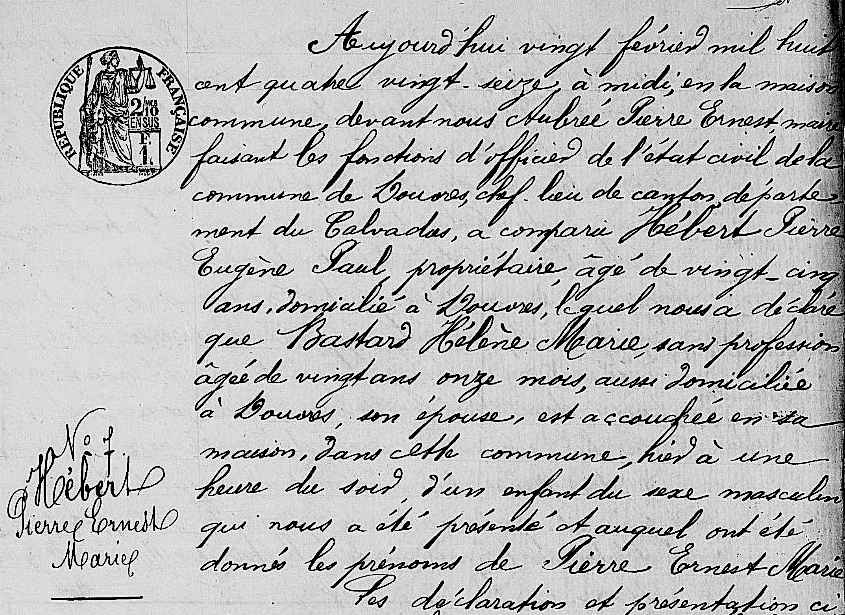 RÉPUBLIQUE FRANÇAISE
2/10
EN SUS
F.
1.
Aujourd'hui vingt février mil huit
cent quatre vingt-seize, à midi, en la maison
commune, devant nous Aubrée Pierre Ernest, maire
faisant les fonctions d'officier de l'état civil de la
commune de Douvres, chef-lieu de canton, départe-
ment du Calvados, a comparu Hébert Pierre
Eugène Paul, propriétaire, âgé de vingt-cinq
ans, domicilié à Douvres, lequel nous a déclaré
que Bastard Hélène Marie, sans profession
âgée de vingt ans onze mois, aussi domiciliée
à Douvres, son épouse, est accouchée en sa
maison, dans cette commune, hier à une
heure du soir, d'un enfant du sexe masculin
qui nous a été présenté et auquel ont été
donnés les prénoms de Pierre Ernest Marie
Les déclaration et présentation ci
No 7
Hébert
Pierre Ernest
Marie